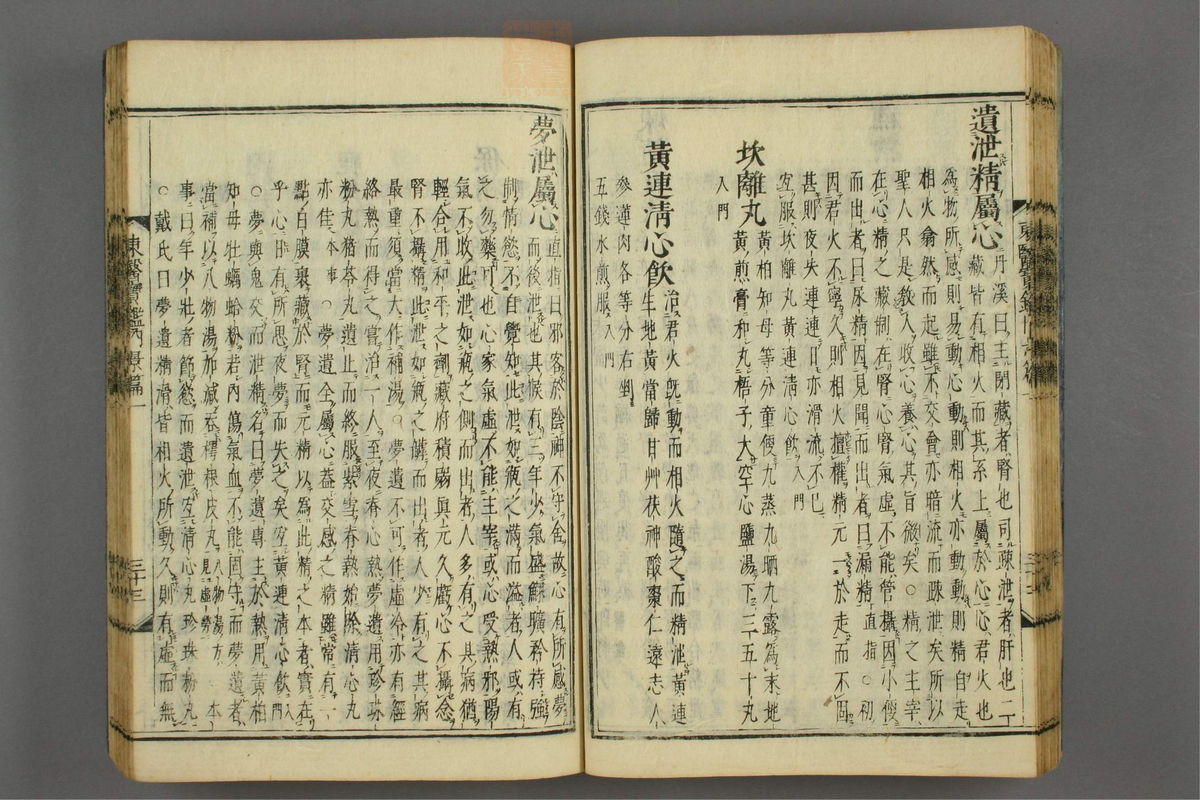 遺泄精屬心
丹溪曰主閉藏者腎也司疎泄者肝也二
藏皆有相火而其系上屬於心心君火也
爲物所感則易動心動則相火亦動動則精自走
相火翕然而起雖不交會亦暗流而疎泄矣所以
聖人只是敎人收心養心其旨微矣○精之主宰
在心精之藏制在腎心腎氣虛不能管攝因小便
而出者曰尿精因見聞而出者曰漏精直指○初
因君火不寧久則相火擅權精元一於走而不固
甚則夜失連連日亦滑流不已
宜服坎離丸黃連淸心飮入門
坎離丸
黃柏知母等分童便九蒸九晒九露爲末地
黃煎膏和丸梧子大空心鹽湯下三五十丸
入門
黃連淸心飮
治君火旣動而相火隨之而精泄黃連
生地黃當歸甘艸茯神酸棗仁遠志人
參蓮肉各等分右剉
五錢水煎服入門
東醫寶鑑內景篇一
夢泄屬心
直指曰邪客於陰神不守舍故心有所感夢
而後泄也其候有三年少氣盛鰥曠矜持強
制情慾不自覺知此泄如甁之滿而溢者人或有
之勿藥可也心家氣虛不能主宰或心受熱邪陽
氣不收此泄如甁之側而出者人多有之其病猶
輕合用和平之劑藏府積弱眞元久虧心不攝念
腎不攝精此泄如甁之罅而出者人少有之其病
最重須當大作補湯○夢遺不可作虛冷亦有經
絡熱而得之嘗治一人至夜脊心熱夢遺用珍珠
粉丸猪苓丸遺止而終服紫雪脊熱始除淸心丸
亦佳本事○夢遺全屬心盖交感之精雖常有一
點白膜裹藏於腎而元精以爲此精之本者實在
乎心日有所思夜夢而失之矣宜黃連淸心飮入門
○夢與鬼交而泄精名曰夢遺專主於熱用黃柏
知母牡蠣蛤粉若內傷氣血不能固守而夢遺者
當補以八物湯加減呑樗根皮丸八物湯方見虛勞本
事曰年少壯者節慾而遺泄宜淸心丸珍珠粉丸
○戴氏曰夢遺精滑皆相火所動久則有虛而無
三十三